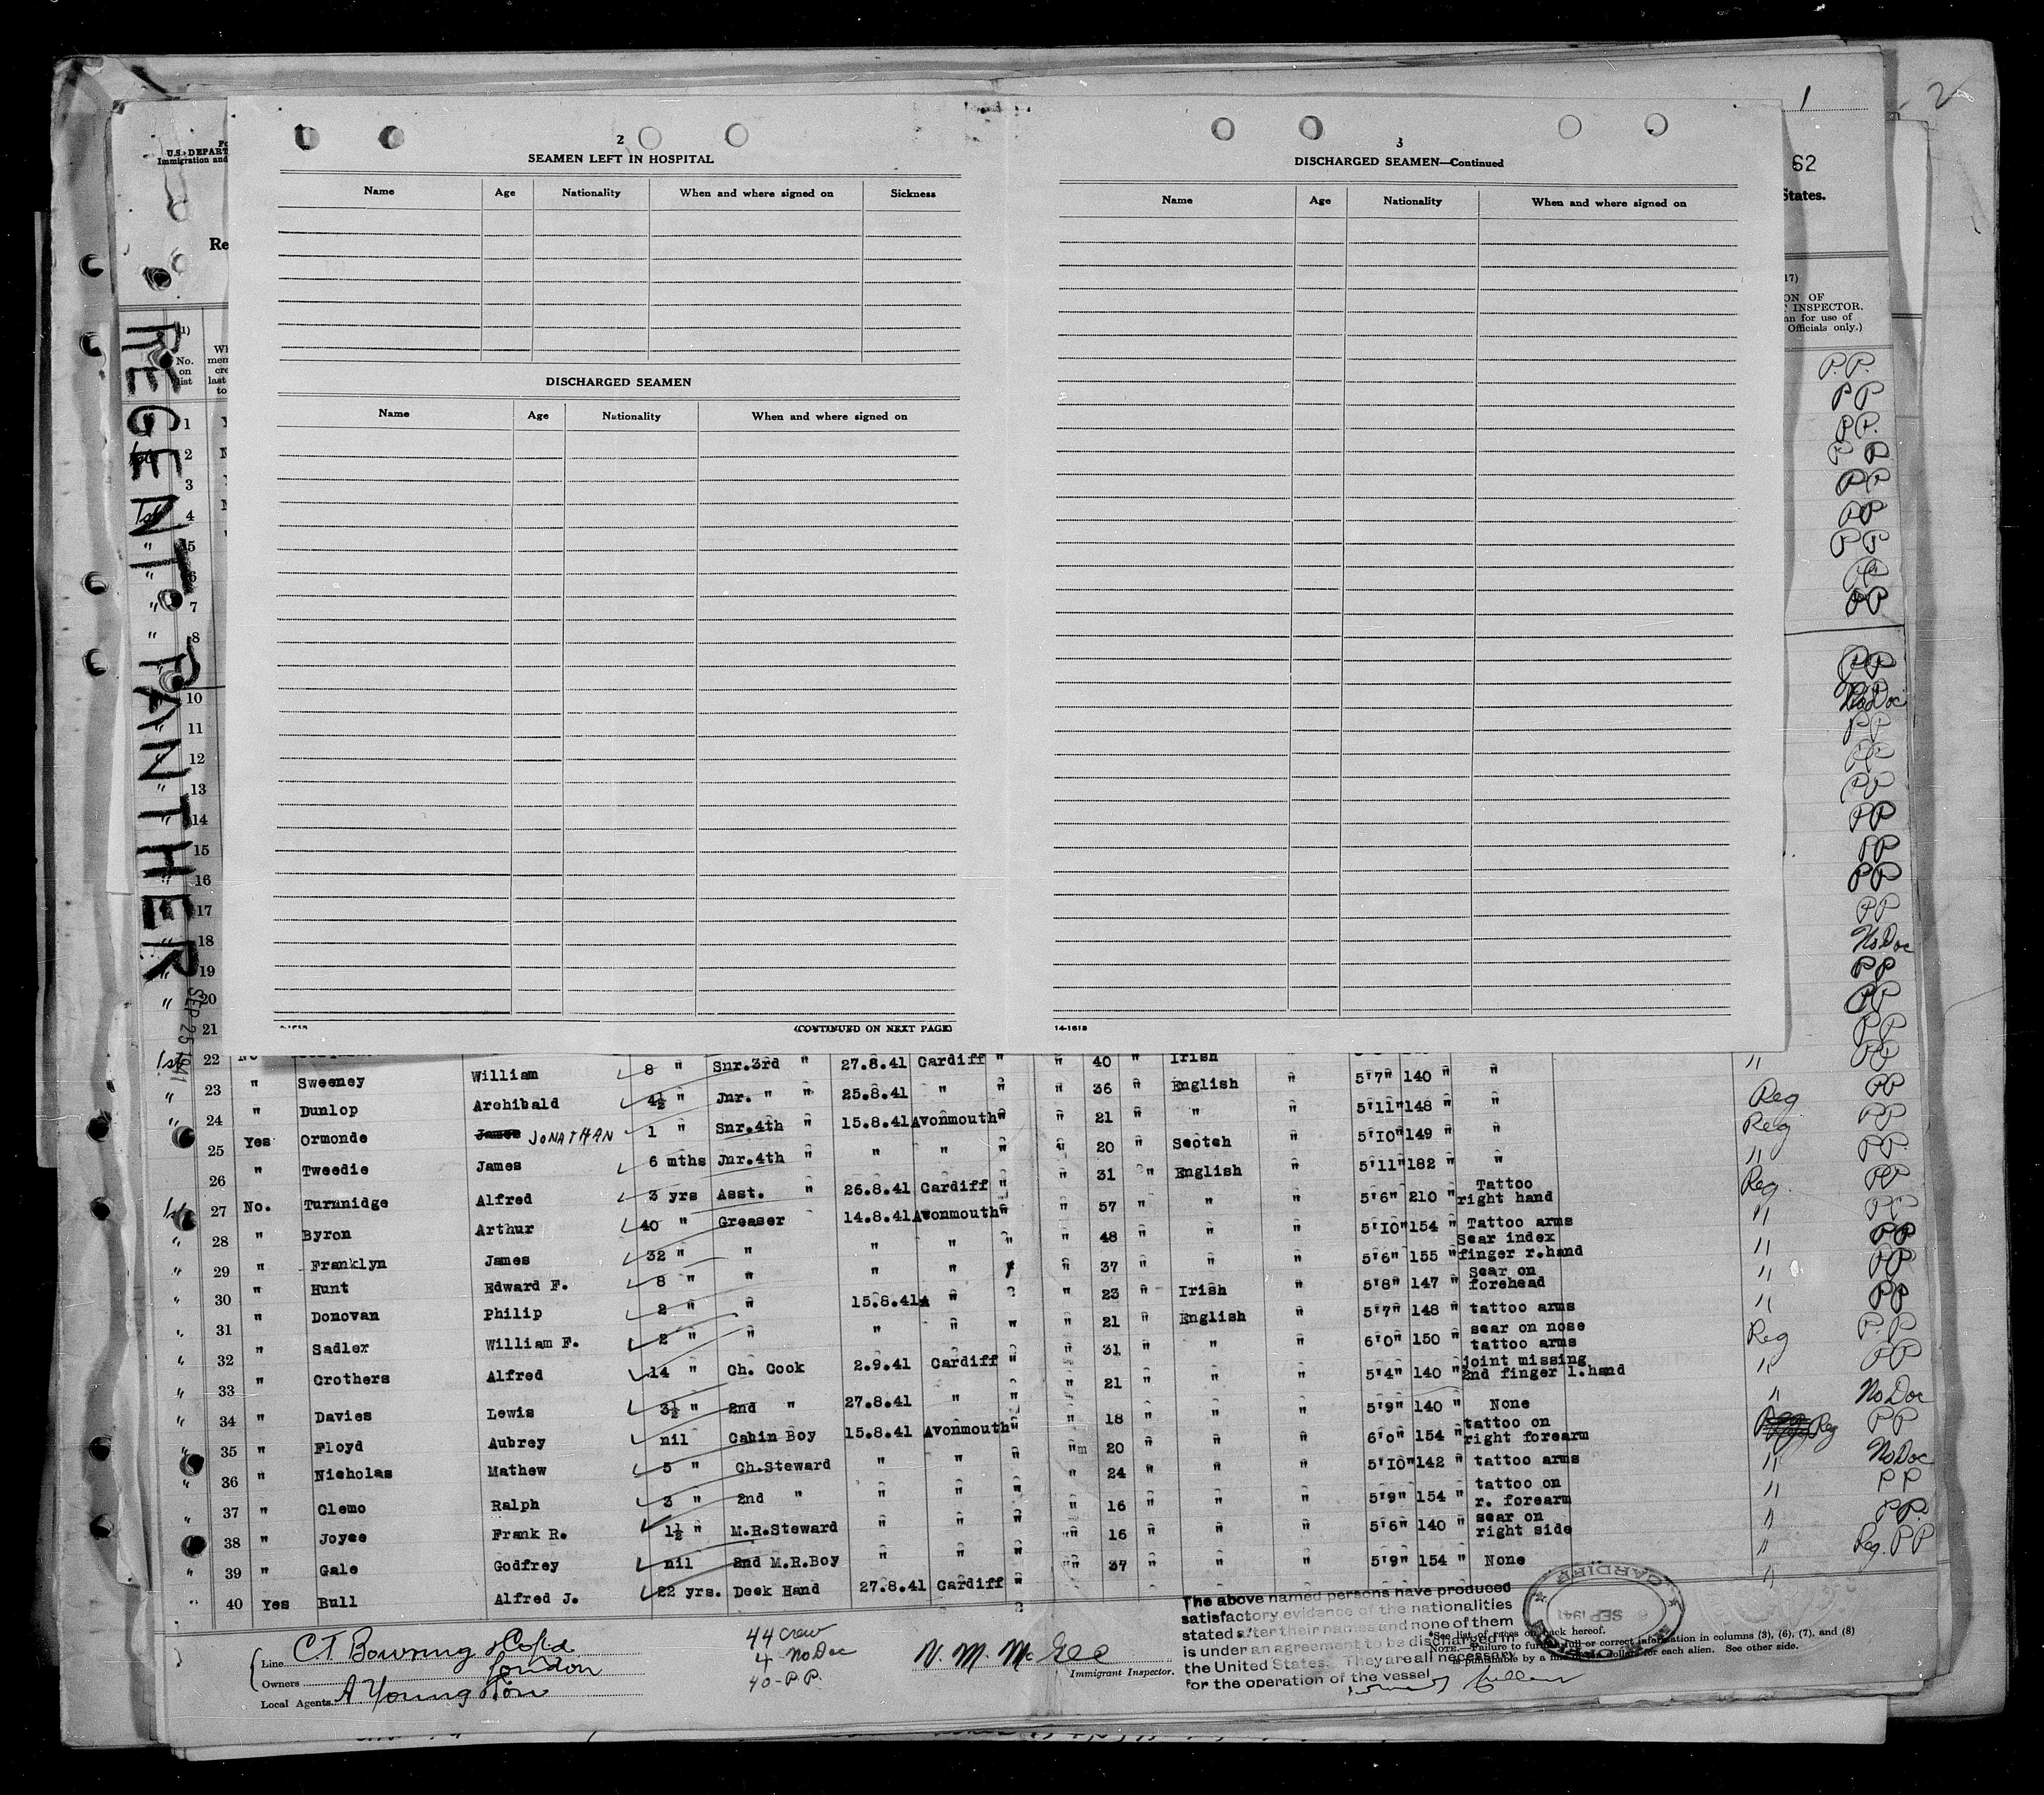 1
2
62
States.
U.S. DEPART
Immigration and
Re
REGENT PANTHER
SEP 25 1941
2
SEAMEN LEFT IN HOSPITAL
Name Age Nationality When and where signed on Sickness
DISCHARGED SEAMEN
Name Age Nationality When and where signed on
(CONTINUED ON NEXT PAGE)
3
DISCHARGED SEAMEN—Continued
Name Age Nationality When and where signed on
14-1618
(1)
No.
on
list
17)
ON OF
INSPECTOR.
for use of
Officials only.)
1
2
3
4
5
6
7
8
10
11
12
13
14
15
16
17
18
19
20
21
P.P.
PP
PP.
PP
PP
PP
PP
PP
PP
PP
No Doc
PP
PP
PP
PP
PP
PP
PP
No Doc
PP
PP
PP
PP
22 8 " Snr.3rd " 27.8.41 Cardiff " " 40 " Irish
23 " Sweeney William 4½ " Jnr. " " 25.8.41 " " " 36 " English " 5'7" 140 " "
24 " Dunlop Archibald 1 " Snr.4th " 15.8.41 Avonmouth " " 21 " " " 5'11" 148 " " Reg PP
25 Yes Ormonde James JONATHAN 6 mths Jnr.4th " " " " " 20 " Scotch " 5'10" 149 " " Reg PP
26 " Tweedie James 3 yrs Asst. " 26.8.41 Cardiff " " 31 " English " 5'11" 182 " " " PP.
27 No. Turnnidge Alfred 40 " Greaser 14.8.41 Avonmouth " " 57 " " " 5'6" 210 " Tattoo right hand Reg. PP
28 " Byron Arthur 32 " " " " " " 48 " " " 5'10" 154 " Tattoo arms " PP
29 " Franklyn James 8 " " " " " 37 " " " 5'6" 155 " Scar index finger r.hand " PP
30 " Hunt Edward F. 2 " " 15.8.41 " " " 23 " Irish " 5'8" 147 " Scar on forehead " PP
31 " Donovan Philip 2 " " " " " " 21 " English " 5'7" 148 " tattoo arms " PP
32 " Sadler William F. 14 " Ch. Cook 2.9.41 Cardiff " " 31 " " " 6'0" 150 " scar on nose tattoo arms Reg P.P
33 " Crothers Alfred 3½ " 2nd " 27.8.41 " " " 21 " " " 5'4" 140 " joint missing 2nd finger l.hand " PP
34 " Davies Lewis nil Cabin Boy 15.8.41 Avonmouth " " 18 " " " 5'9" 140 " None " No Doc
35 " Floyd Aubrey 5 " Ch.Steward " " " " 20 " " " 6'0" 154 " tattoo on right forearm Reg PP
36 " Nicholas Mathew 3 " 2nd " " " " " 24 " " " 5'10" 142 " tattoo arms " No Doc
37 " Clemo Ralph 1½ " M.R.Steward " " " " 16 " " " 5'9" 154 " tattoo on r. forearm " PP
38 " Joyce Frank R. nil 2nd M.R.Boy " " " " 16 " " " 5'6" 140 " scar on right side " PP.
39 " Gale Godfrey 22 yrs. Deck Hand 27.8.41 Cardiff " " 37 " " " 5'9" 154 " None " Reg. PP
40 Yes Bull Alfred J.
Line C.T. Bowring & Co Ltd
Owners London
Local Agents A Young
44 Crew
4 - No Doc
40 - P P.
N. M. McGee
Immigrant Inspector.
The above named persons have produced
satisfactory evidence of the nationalities
stated after their names and none of them
is under an agreement to be discharged in
the United States. They are all necessary
for the operation of the vessel
CARDIFF
SEP 1941
*See list of races on back hereof.
NOTE.—Failure to furnish full or correct information in columns (3), (6), (7), and (8)
is punishable by a fine of dollars for each alien. See other side.